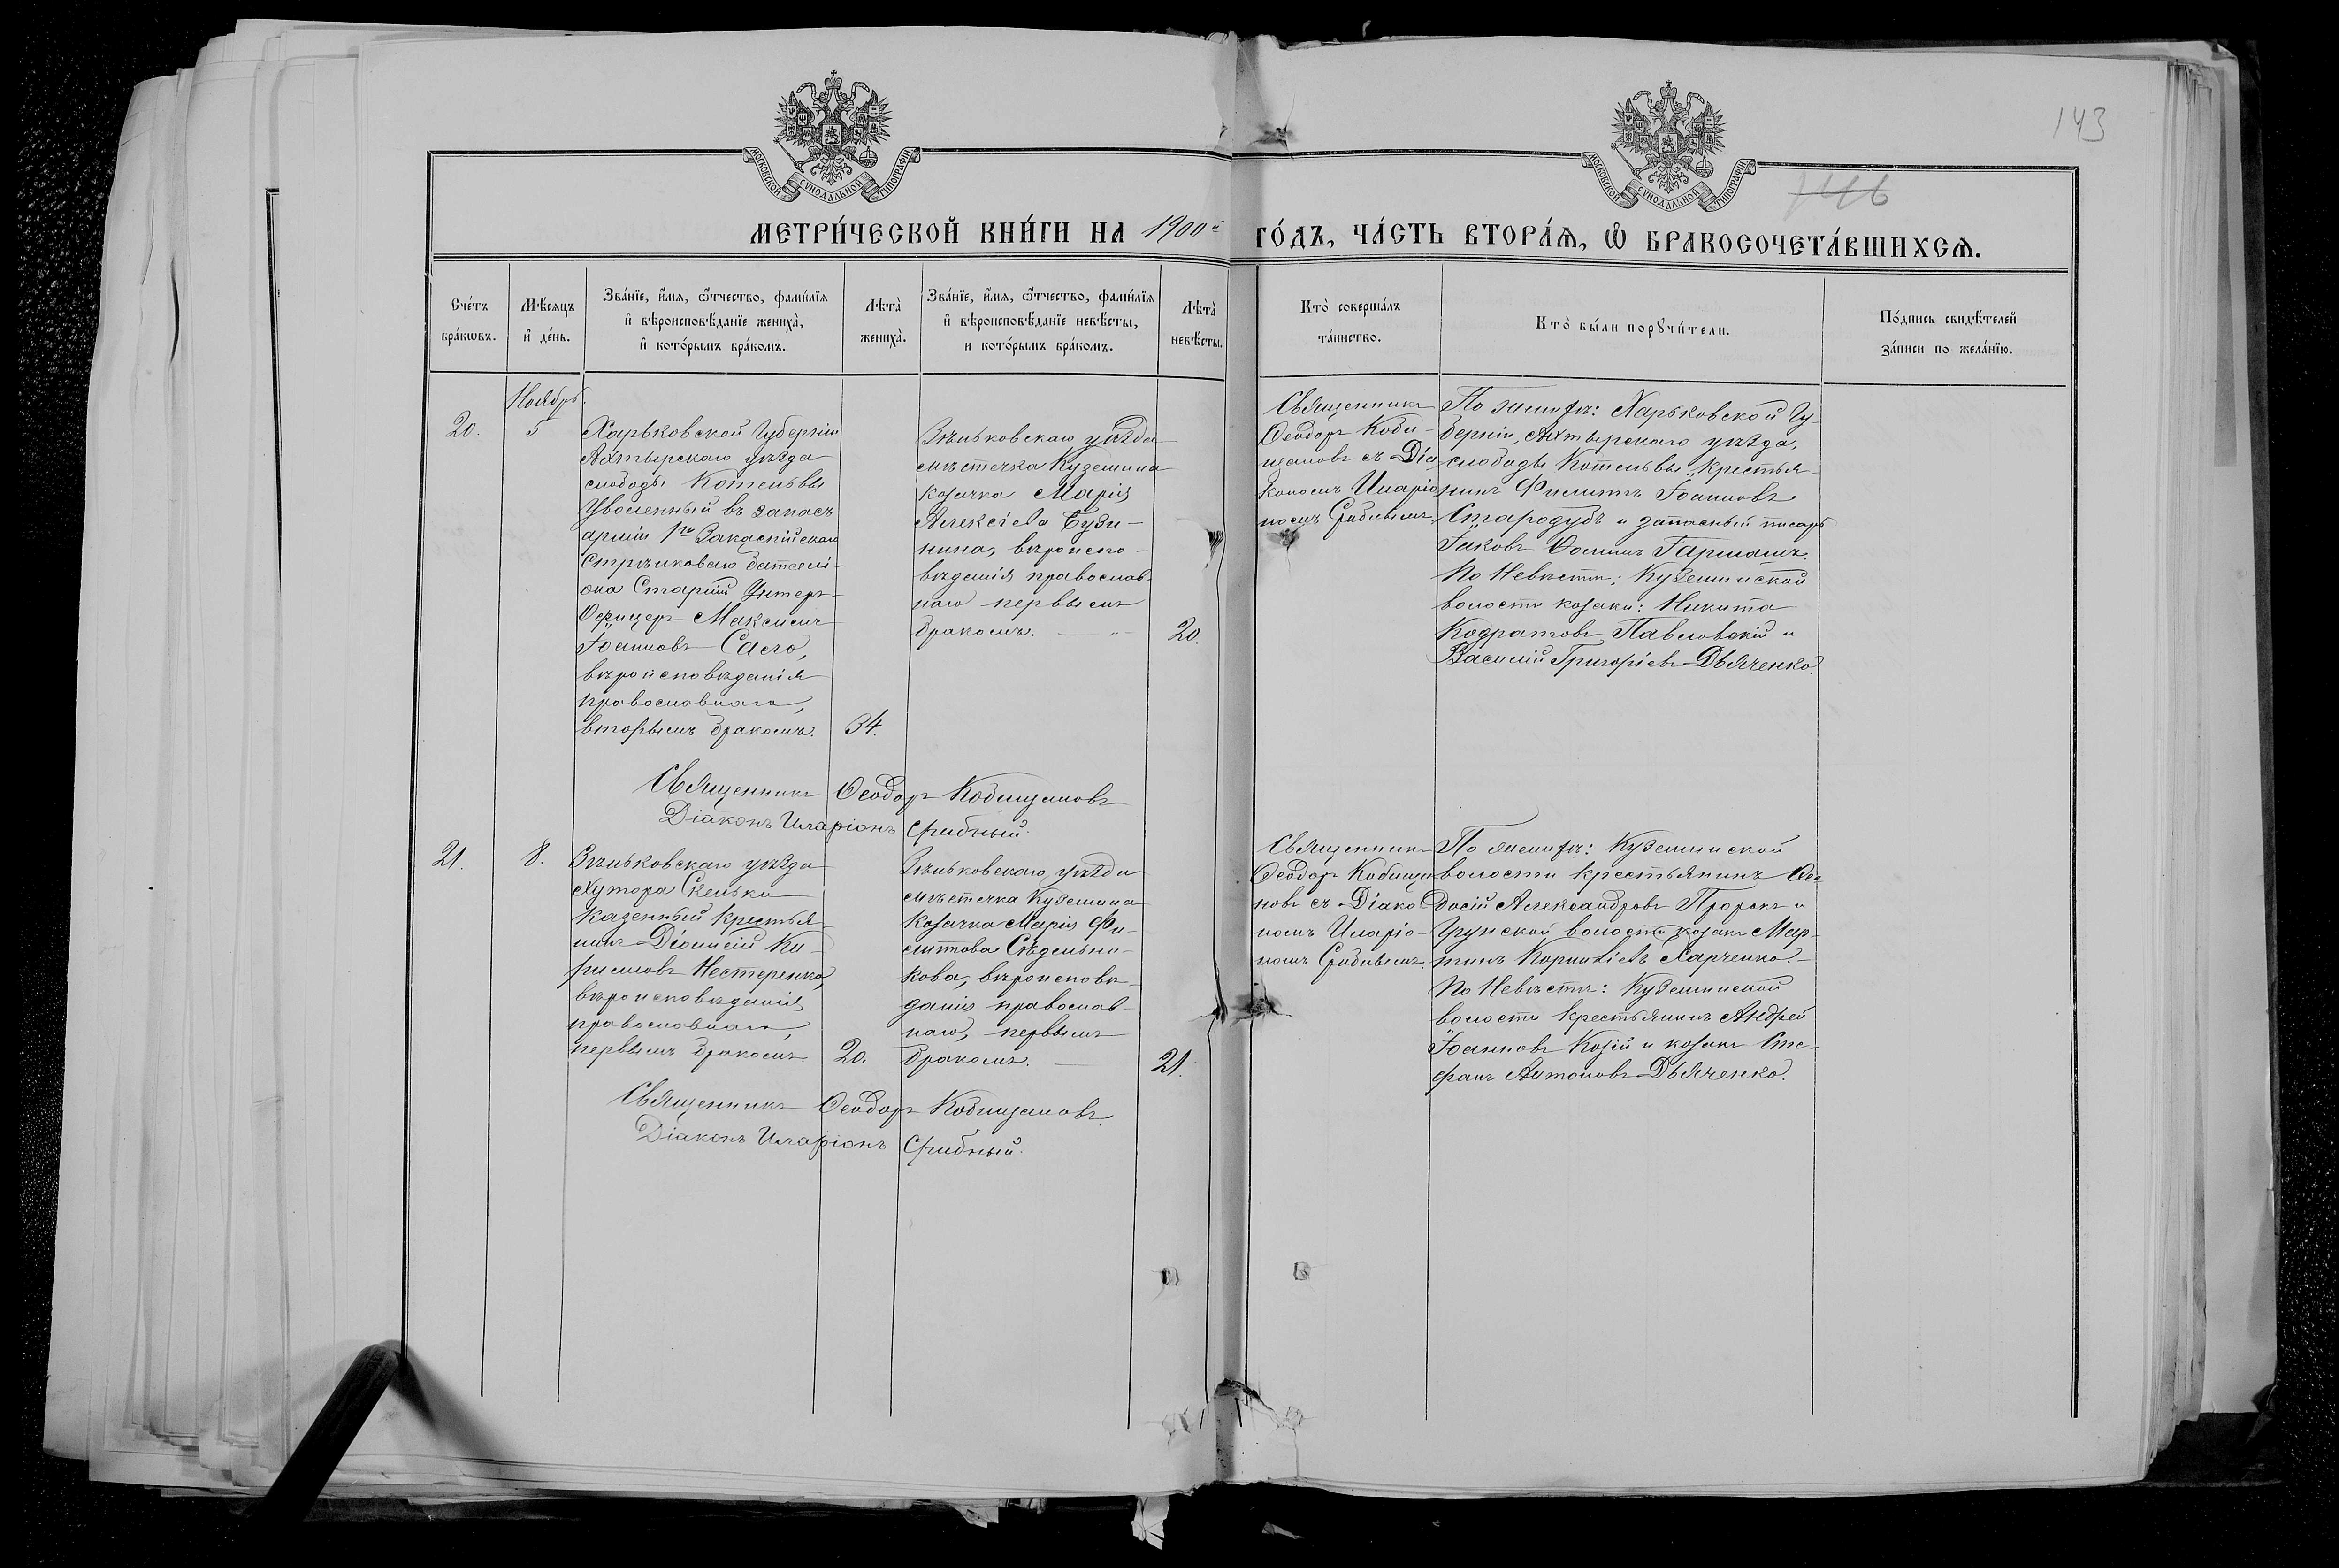 143
146
МОСКОВСКОЙ СУНОДАЛЬНОЙ ТИПОГРАФІИ
МОСКОВСКОЙ СУНОДАЛЬНОЙ ТИПОГРАФІИ
МЕТРИ́ЧЕСКОЙ КНИ́ГИ НА 1900й ГО́ДЪ, ЧА́СТЬ ВТОРА́Я, Ѡ҆ БРАКОСОЧЕТА́ВШИХСѦ.
Сче́тъ бра́кѡвъ.
Мѣ́сяцъ и҆ де́нь.
Зва́нїе, и҆́мя, ѻ҆́тчество, фами́лїя и҆ вѣроисповѣ́данїе жениха̀, и҆ кото́рымъ бра́комъ.
Лѣта̀ жениха̀.
Зва́нїе, и҆́мя, ѻ҆́тчество, фами́лїя и҆ вѣроисповѣ́данїе невѣ́сты, и кото́рымъ бра́комъ.
Лѣта̀ невѣ́сты.
Кто̀ соверша́лъ та́инство.
Кто̀ бы́ли порꙋчи́тели.
По́дпись свидѣ́телей за́писи по жела́нїю.
Ноябрь.
20.
5
Харьковской Губерніи
Ахтырскаго уѣзда
слободы Котельвы
Уволенный въ запасъ
арміи 1го Закаспійскаго
Стрѣлковаго баталі-
она Старшій Унтеръ-
Офицеръ Максимъ
Іоанновъ Сало,
вѣроисповѣданія
православнаго,
вторымъ бракомъ.
34.
Зѣньковскаго уѣзда
мѣстечка Куземина
козачка Марія
Алексіева Бузи-
нина, вѣроиспо-
вѣданія православ-
наго первымъ
бракомъ.
20.
Священникъ
Ѳеодоръ Коби-
щановъ съ Діа
кономъ Иларіо
номъ Срибнымъ.
По женихѣ: Харьковской Гу-
берніи, Ахтырскаго уѣзда,
слободы Котельвы, крестья-
нинъ Филиппъ Іоанновъ
Стародубъ и запасный писарь
Іаковъ Ѳоминъ Гармашъ.
По Невѣстѣ: Куземинской
волости козаки: Никита
Кодратовъ Павловскій и
Василій Григоріевъ Дьяченко.
Священникъ Ѳеодоръ Кобищановъ
Діаконъ Иларіонъ Срибный.
21.
8.
Зѣньковскаго уѣзда
Хутора Скельки
казенный крестья-
нинъ Діонисій Ки-
рилловъ Нестеренко,
вѣроисповѣданія
православнаго,
первымъ бракомъ.
20.
Зѣньковскаго уѣзда
мѣстечка Куземина
Козачка Марія Фи-
липпова Сѣдельни-
кова, вѣроисповѣ-
данія православ-
наго, первымъ
бракомъ.
21.
Священникъ
Ѳеодоръ Кобища
новъ съ Діако
номъ Иларіо-
номъ Срибнымъ.
По женихѣ: Куземинской
волости крестьянинъ Ѳео
досій Александровъ Пророкъ и
Грунской волости козакъ Мар-
тинъ Корниліевъ Харченко.
По Невѣстѣ: Куземинской
волости крестьянинъ Андрей
Іоанновъ Козій и козакъ Сте-
фанъ Антоновъ Дьяченко.
Священникъ Ѳеодоръ Кобищановъ.
Діаконъ Иларіонъ Срибный.